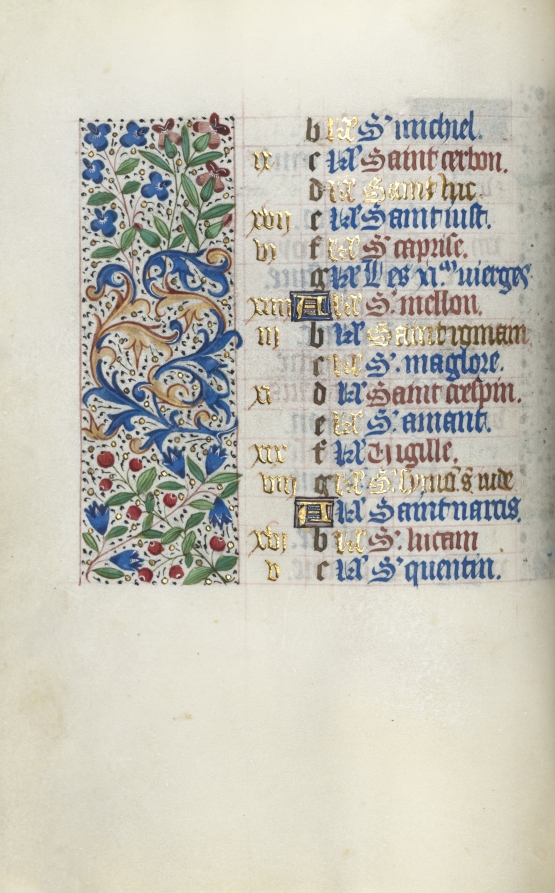 b kl' S' michiel.
ix c kl' Saint cerbon.
d kl' Saint luc
xvij e kl' Saint iust.
vj f kl' S' caprise.
g kl' Les xi.m vierges
xiiij A kl' S' mellon.
iij b kl' Saint romain
c kl' S' maglore.
xi d kl' Saint crespin.
e kl' S' amant.
xix f kl' Vigille.
viij g kl' S' symõ s' iude
A kl' Saint narcis.
xvj b kl' S' lucain
v c kl' S' quentin.